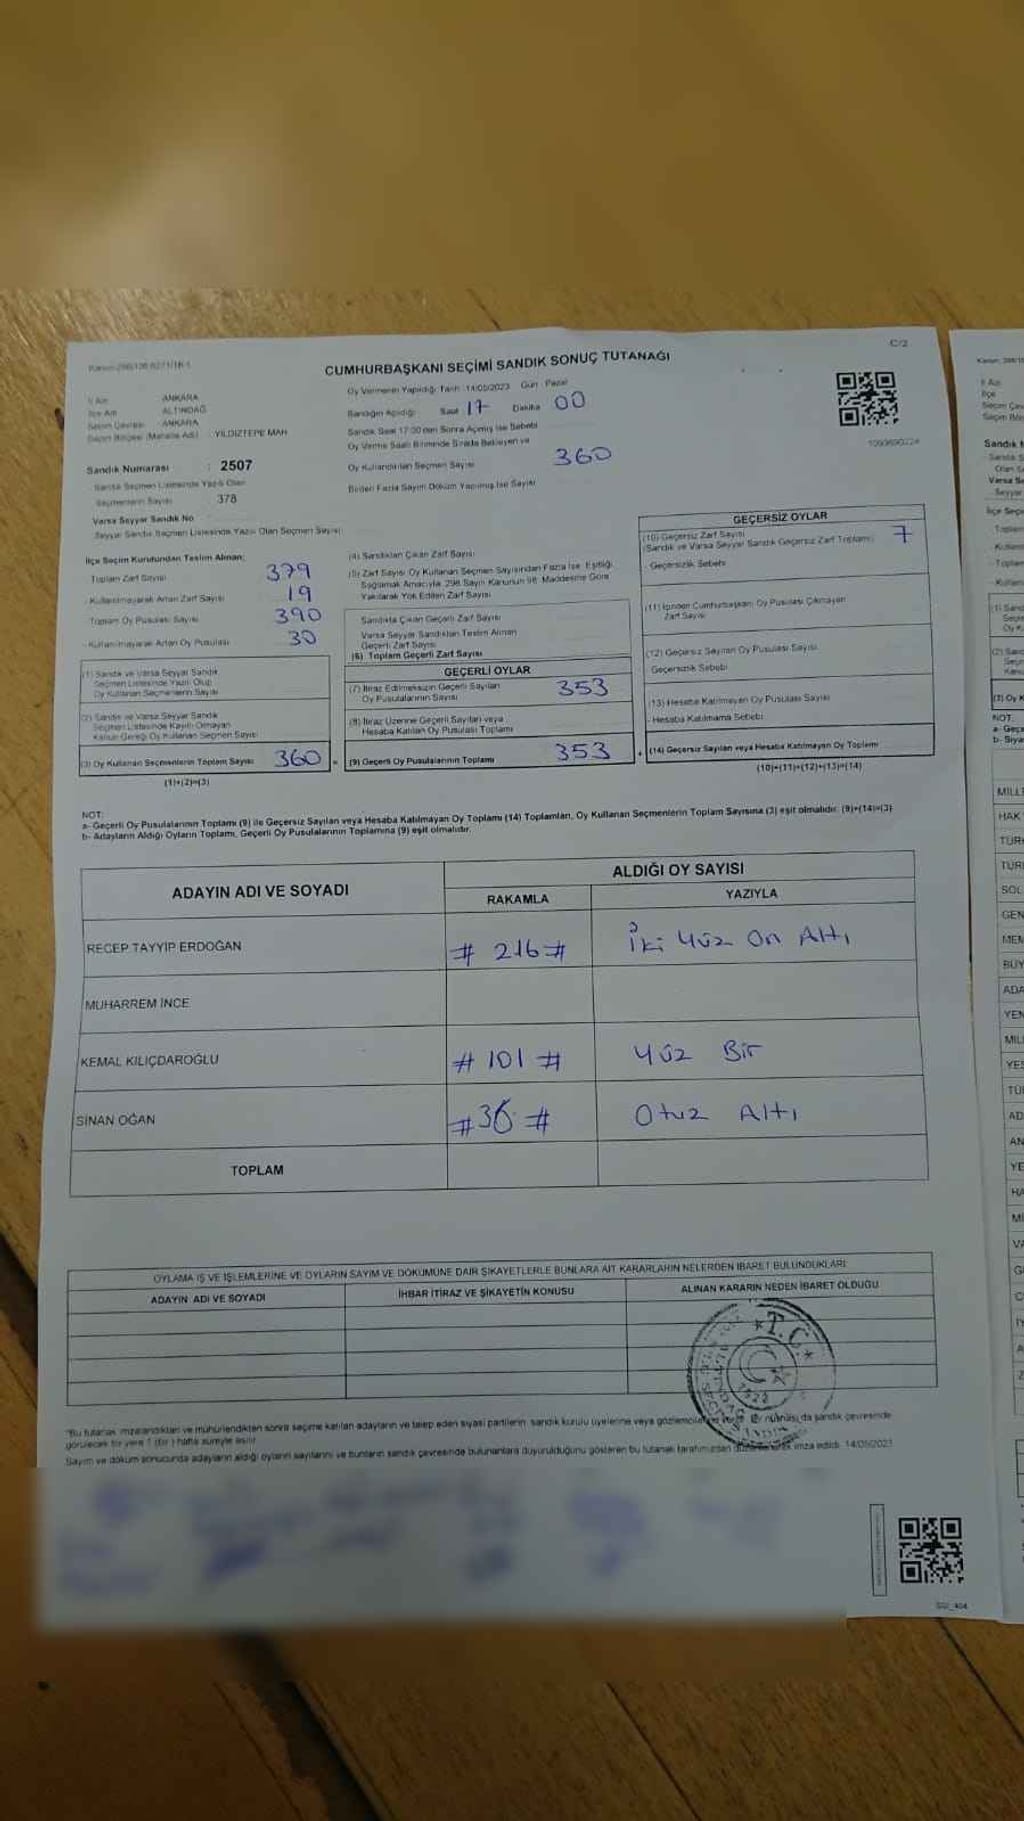 C/2
CUMHURBAŞKANI SEÇİMİ SANDIK SONUÇ TUTANAĞI
İl Adı ANKARA
İlçe Adı ALTINDAĞ
Seçim Çevresi ANKARA
Seçim Bölgesi (Mahalle Adı) YILDIZTEPE MAH
Sandık Numarası : 2507
Sandık Seçmen Listesinde Yazılı Olan
Seçmenlerin Sayısı 378
Varsa Seyyar Sandık No
Seyyar Sandık Seçmen Listesinde Yazılı Olan Seçmen Sayısı
Oy Vermenin Yapıldığı Tarih 14/05/2023 Gün Pazar
Sandığın Açıldığı Saat 17 Dakika 00
Sandık Saat 17:00'den Sonra Açılmış İse Sebebi
Oy Verme Saati Bitiminde Sırada Bekleyen ve
Oy Kullandırılan Seçmen Sayısı 360
Birden Fazla Sayım Döküm Yapılmış İse Sayısı
İlçe Seçim Kurulundan Teslim Alınan;
Toplam Zarf Sayısı 379
- Kullanılmayarak Artan Zarf Sayısı 19
Toplam Oy Pusulası Sayısı 390
- Kullanılmayarak Artan Oy Pusulası 30
(1) Sandık ve Varsa Seyyar Sandık
Seçmen Listesinde Yazılı Olup
Oy Kullanan Seçmenlerin Sayısı
(2) Sandık ve Varsa Seyyar Sandık
Seçmen Listesinde Kayıtlı Olmayan
Kanun Gereği Oy Kullanan Seçmen Sayısı
(3) Oy Kullanan Seçmenlerin Toplam Sayısı 360
(1)+(2)=(3)
(4) Sandıktan Çıkan Zarf Sayısı
(5) Zarf Sayısı Oy Kullanan Seçmen Sayısından Fazla İse, Eşitliği
Sağlamak Amacıyla, 298 Sayılı Kanunun 98. Maddesine Göre
Yakılarak Yok Edilen Zarf Sayısı
Sandıkta Çıkan Geçerli Zarf Sayısı
Varsa Seyyar Sandıktan Teslim Alınan
Geçerli Zarf Sayısı
(6) Toplam Geçerli Zarf Sayısı
GEÇERLİ OYLAR
(7) İtiraz Edilmeksizin Geçerli Sayılan
Oy Pusulalarının Sayısı 353
(8) İtiraz Üzerine Geçerli Sayılan veya
Hesaba Katılan Oy Pusulası Toplamı
(9) Geçerli Oy Pusulalarının Toplamı 353
GEÇERSİZ OYLAR
(10) Geçersiz Zarf Sayısı
(Sandık ve Varsa Seyyar Sandık Geçersiz Zarf Toplamı) 7
Geçersizlik Sebebi
(11) İçinden Cumhurbaşkanı Oy Pusulası Çıkmayan
Zarf Sayısı
(12) Geçersiz Sayılan Oy Pusulası Sayısı
Geçersizlik Sebebi
(13) Hesaba Katılmayan Oy Pusulası Sayısı
- Hesaba Katılmama Sebebi
(14) Geçersiz Sayılan veya Hesaba Katılmayan Oy Toplamı
(10)+(11)+(12)+(13)=(14)
NOT:
a- Geçerli Oy Pusulalarının Toplamı (9) ile Geçersiz Sayılan veya Hesaba Katılmayan Oy Toplamı (14) Toplamları, Oy Kullanan Seçmenlerin Toplam Sayısına (3) eşit olmalıdır. (9)+(14)=(3)
b- Adayların Aldığı Oyların Toplamı, Geçerli Oy Pusulalarının Toplamına (9) eşit olmalıdır.
ADAYIN ADI VE SOYADI ALDIĞI OY SAYISI
RAKAMLA YAZIYLA
RECEP TAYYİP ERDOĞAN # 216 # İki Yüz On Altı
MUHARREM İNCE
KEMAL KILIÇDAROĞLU # 101 # Yüz Bir
SİNAN OĞAN # 36 # Otuz Altı
TOPLAM
OYLAMA İŞ VE İŞLEMLERİNE VE OYLARIN SAYIM VE DÖKÜMÜNE DAİR ŞİKAYETLERLE BUNLARA AİT KARARLARIN NELERDEN İBARET BULUNDUKLARI
ADAYIN ADI VE SOYADI İHBAR İTİRAZ VE ŞİKAYETİN KONUSU ALINAN KARARIN NEDEN İBARET OLDUĞU
T.C.
"Bu tutanak, imzalandıktan ve mühürlendikten sonra seçime katılan adayların ve talep eden siyasi partilerin sandık kurulu üyelerine veya
görülecek bir yere 1 (bir) hafta süreyle asılır
Sayım ve döküm sonucunda adayların aldığı oyların sayılarını ve bunların sandık çevresinde bulunanlara duyurulduğunu gösteren bu tutanak tarafımızdan imza edildi. 14/05/2023
MİLLE
HAK
TÜRK
TÜRK
SOL
GEN
MEM
BÜY
ADA
YEN
MİL
YES
AD
AN
YE